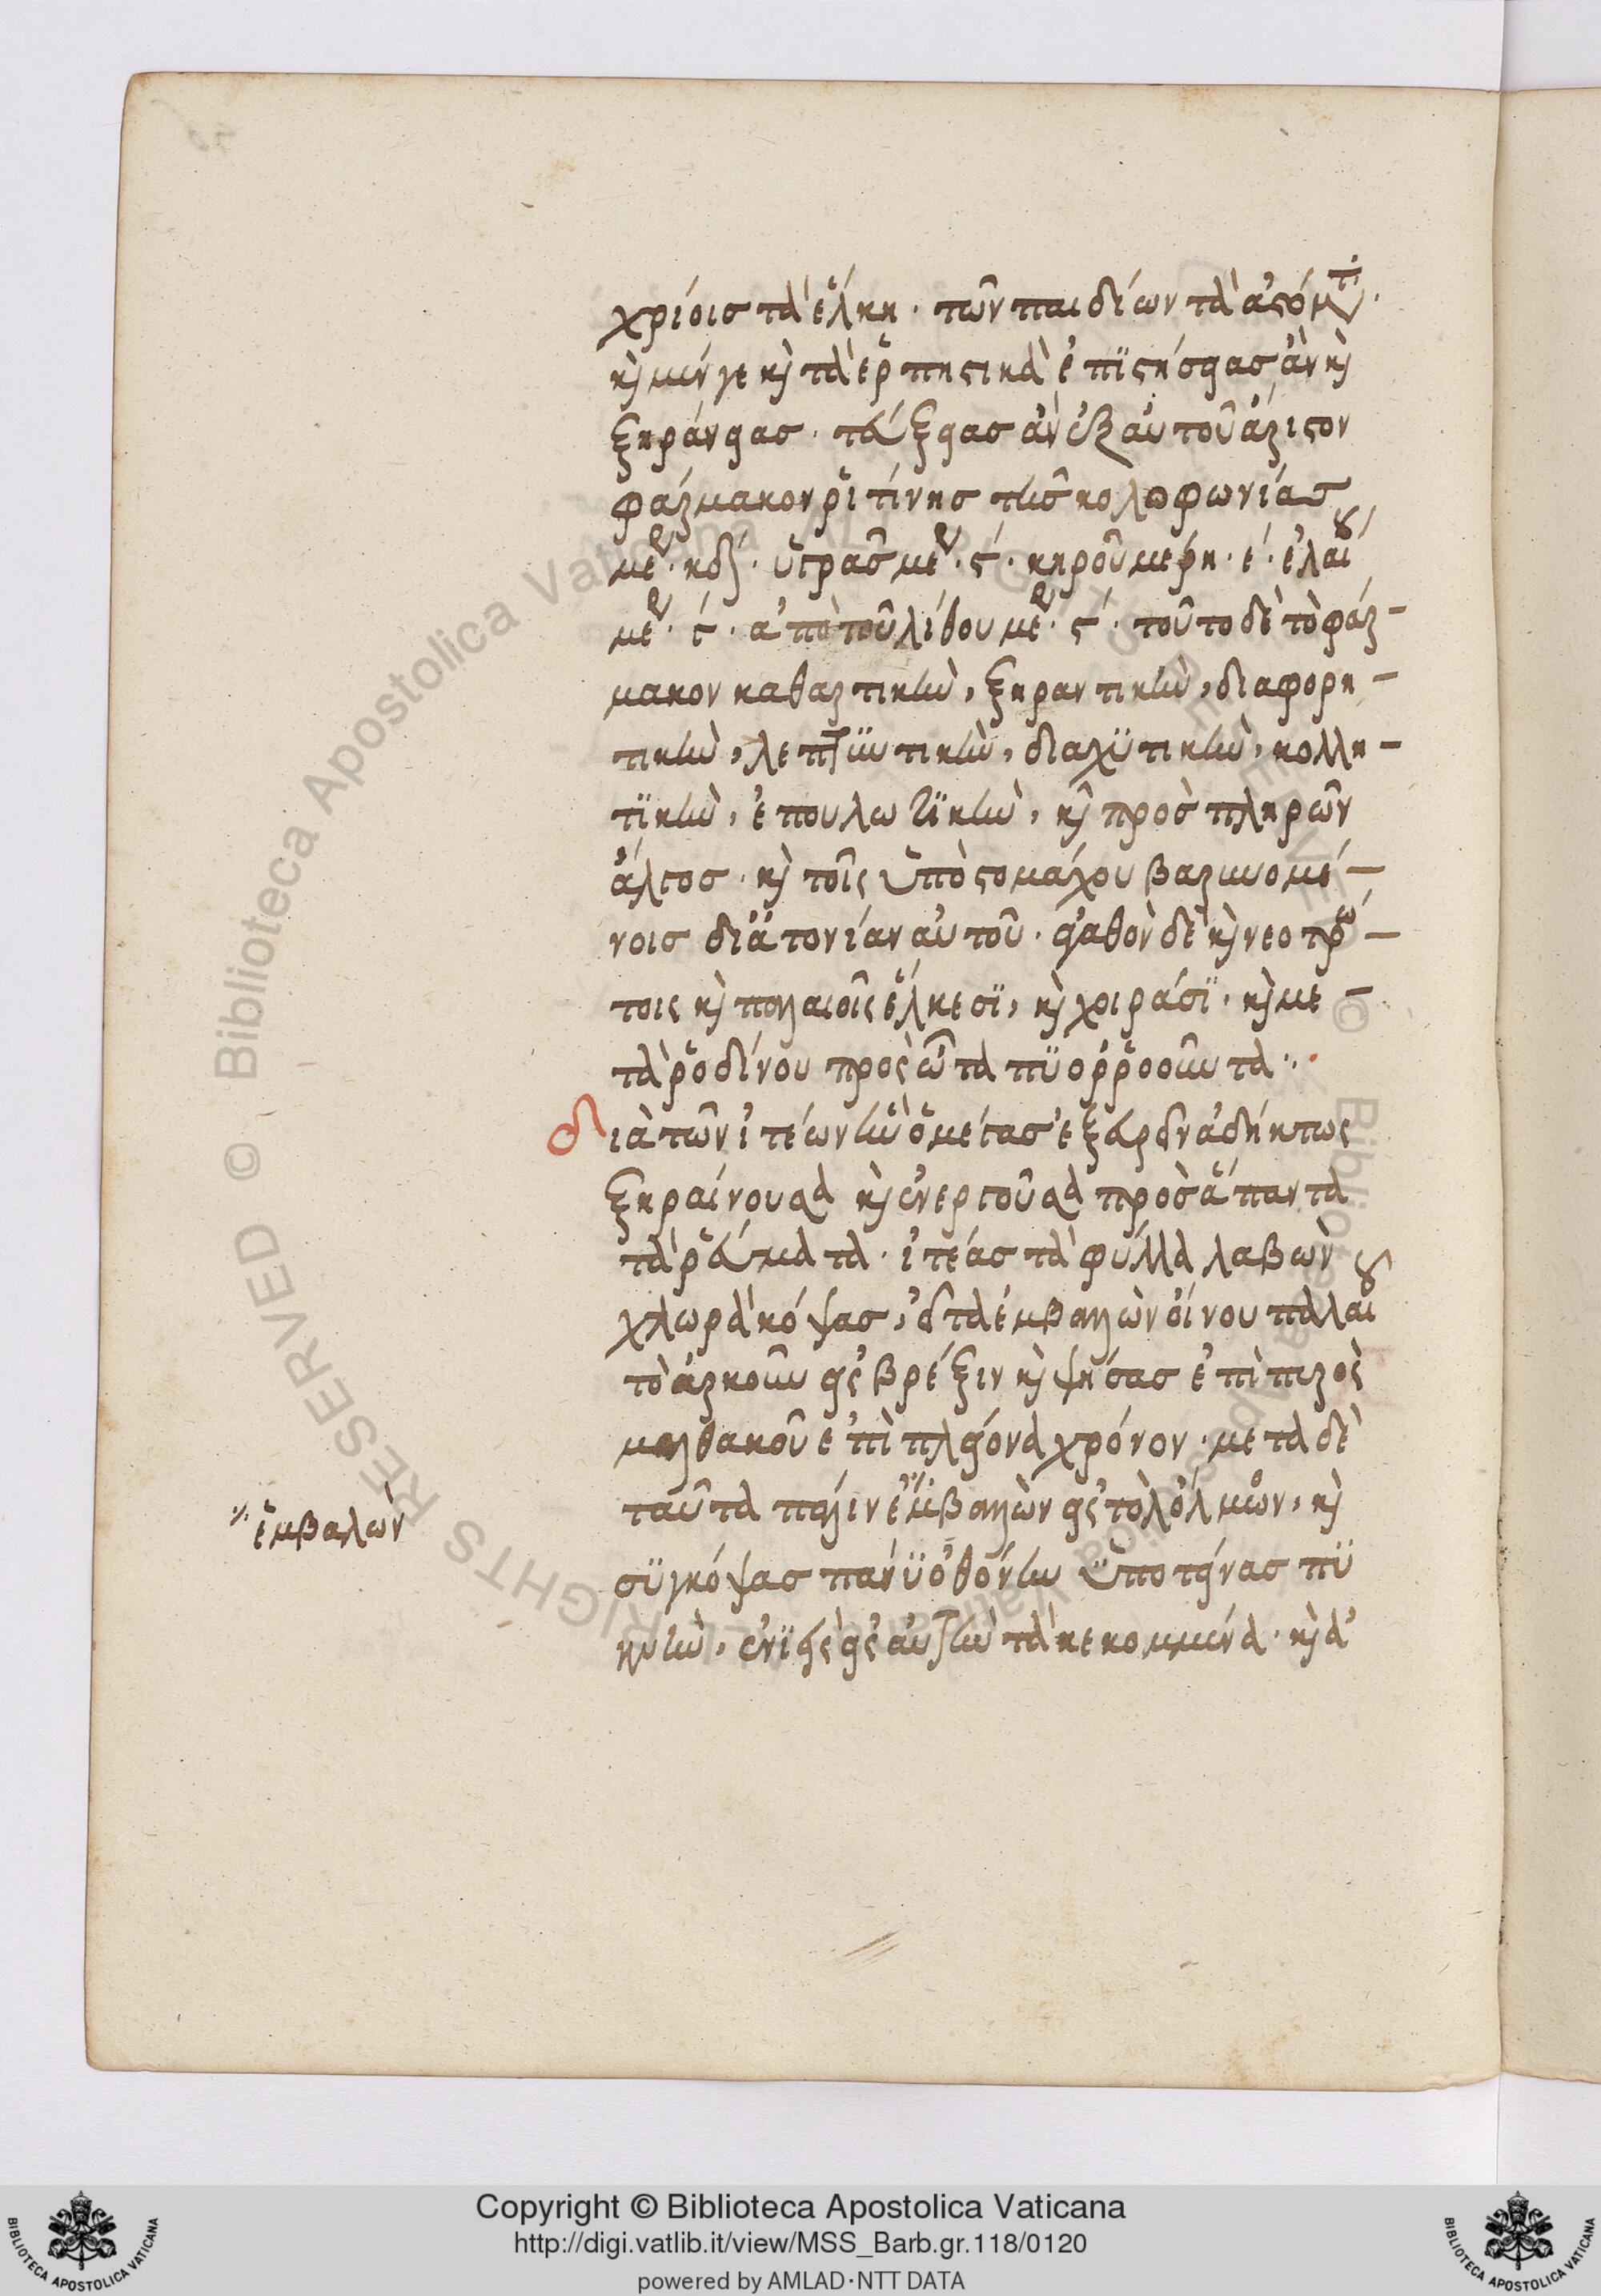 χρίοις τὰ ἕλκη. τῶν παιδίων τὰ
κὴ μέν γε κὴ τὰ ἑρπηστικὰ ἐπϊστήσειας ἂν κὴ
ξηράνειας. τάξειας ἂν ἐξ αὐτοῦ ἄριστον
φάρμακον ῥιτίνης τῆς κολοφωνίας
μερ. κδ. ὑγρᾶς μερ. ς. κηροῦ μέρη. ε. ἐλαίου
μερ. ς. ἀπὸ τοῦ λίθου μερ. ς. τοῦτο δὲ τὸ φάρ-
μακον καθαρτικὴν, ξηραντικὴν, διαφορη-
τικὴν, λεπτϋντικὴν, διαχϋτικὴν, κολλη-
τϊκὴν, ἐπουλωτϊκὴν, κὴ πρὸς πληρῶν
ἄλγος. κὴ τοῖς ὑπὸ στομάχου βαρυνομέ-
νοις διἀτονίαν αὐτοῦ. ἀγαθὸν δὲ κὴ νεοτρώ-
τοις κὴ παλαιοῖς ἕλκεσϊ, κὴ χοιράσϊ. κὴ με-
τὰ ῥοδίνου πρὸς ὦτα πϋορροοῦντα.
διὰ τῶν ἰτεῶν ἣν ὁ μέγας
ξηραίνουσα κὴ ἐνεργοῦσα πρὸς ἅπαντα
τὰ ῥεύματα. ἰτέας τὰ φύλλα λαβὼν
χλωρὰ κόψας, εἶτα ἐμβαλὼν οἴνου παλαιοῦ
τὸ ἀρκοῦν εἰς βρέξιν κὴ ψήσας ἐπὶ πυρὸς
μαλθακοῦ ἐπὶ πλείονα χρόνον. μετα δὲ
ταῦτα πάλιν ἐμβαλὼν εἰς τὸλ ὅλμον, κὴ
ἐμβαλὼν
σϋγκόψας πάνϋ ὀθόνην ὑποτείνας πϋ
κνὴν, ἐνϊεὶς εἰς αὐτὴν τὰ κεκομμένα. κὴ ἀ
Copyright © Biblioteca Apostolica Vaticana
http://digi.vatlib.it/view/MSS_Barb.gr.118/0120
powered by AMLAD·NTT DATA
BIBLIOTECA APOSTOLICA VATICANA
BIBLIOTECA APOSTOLICA VATICANA